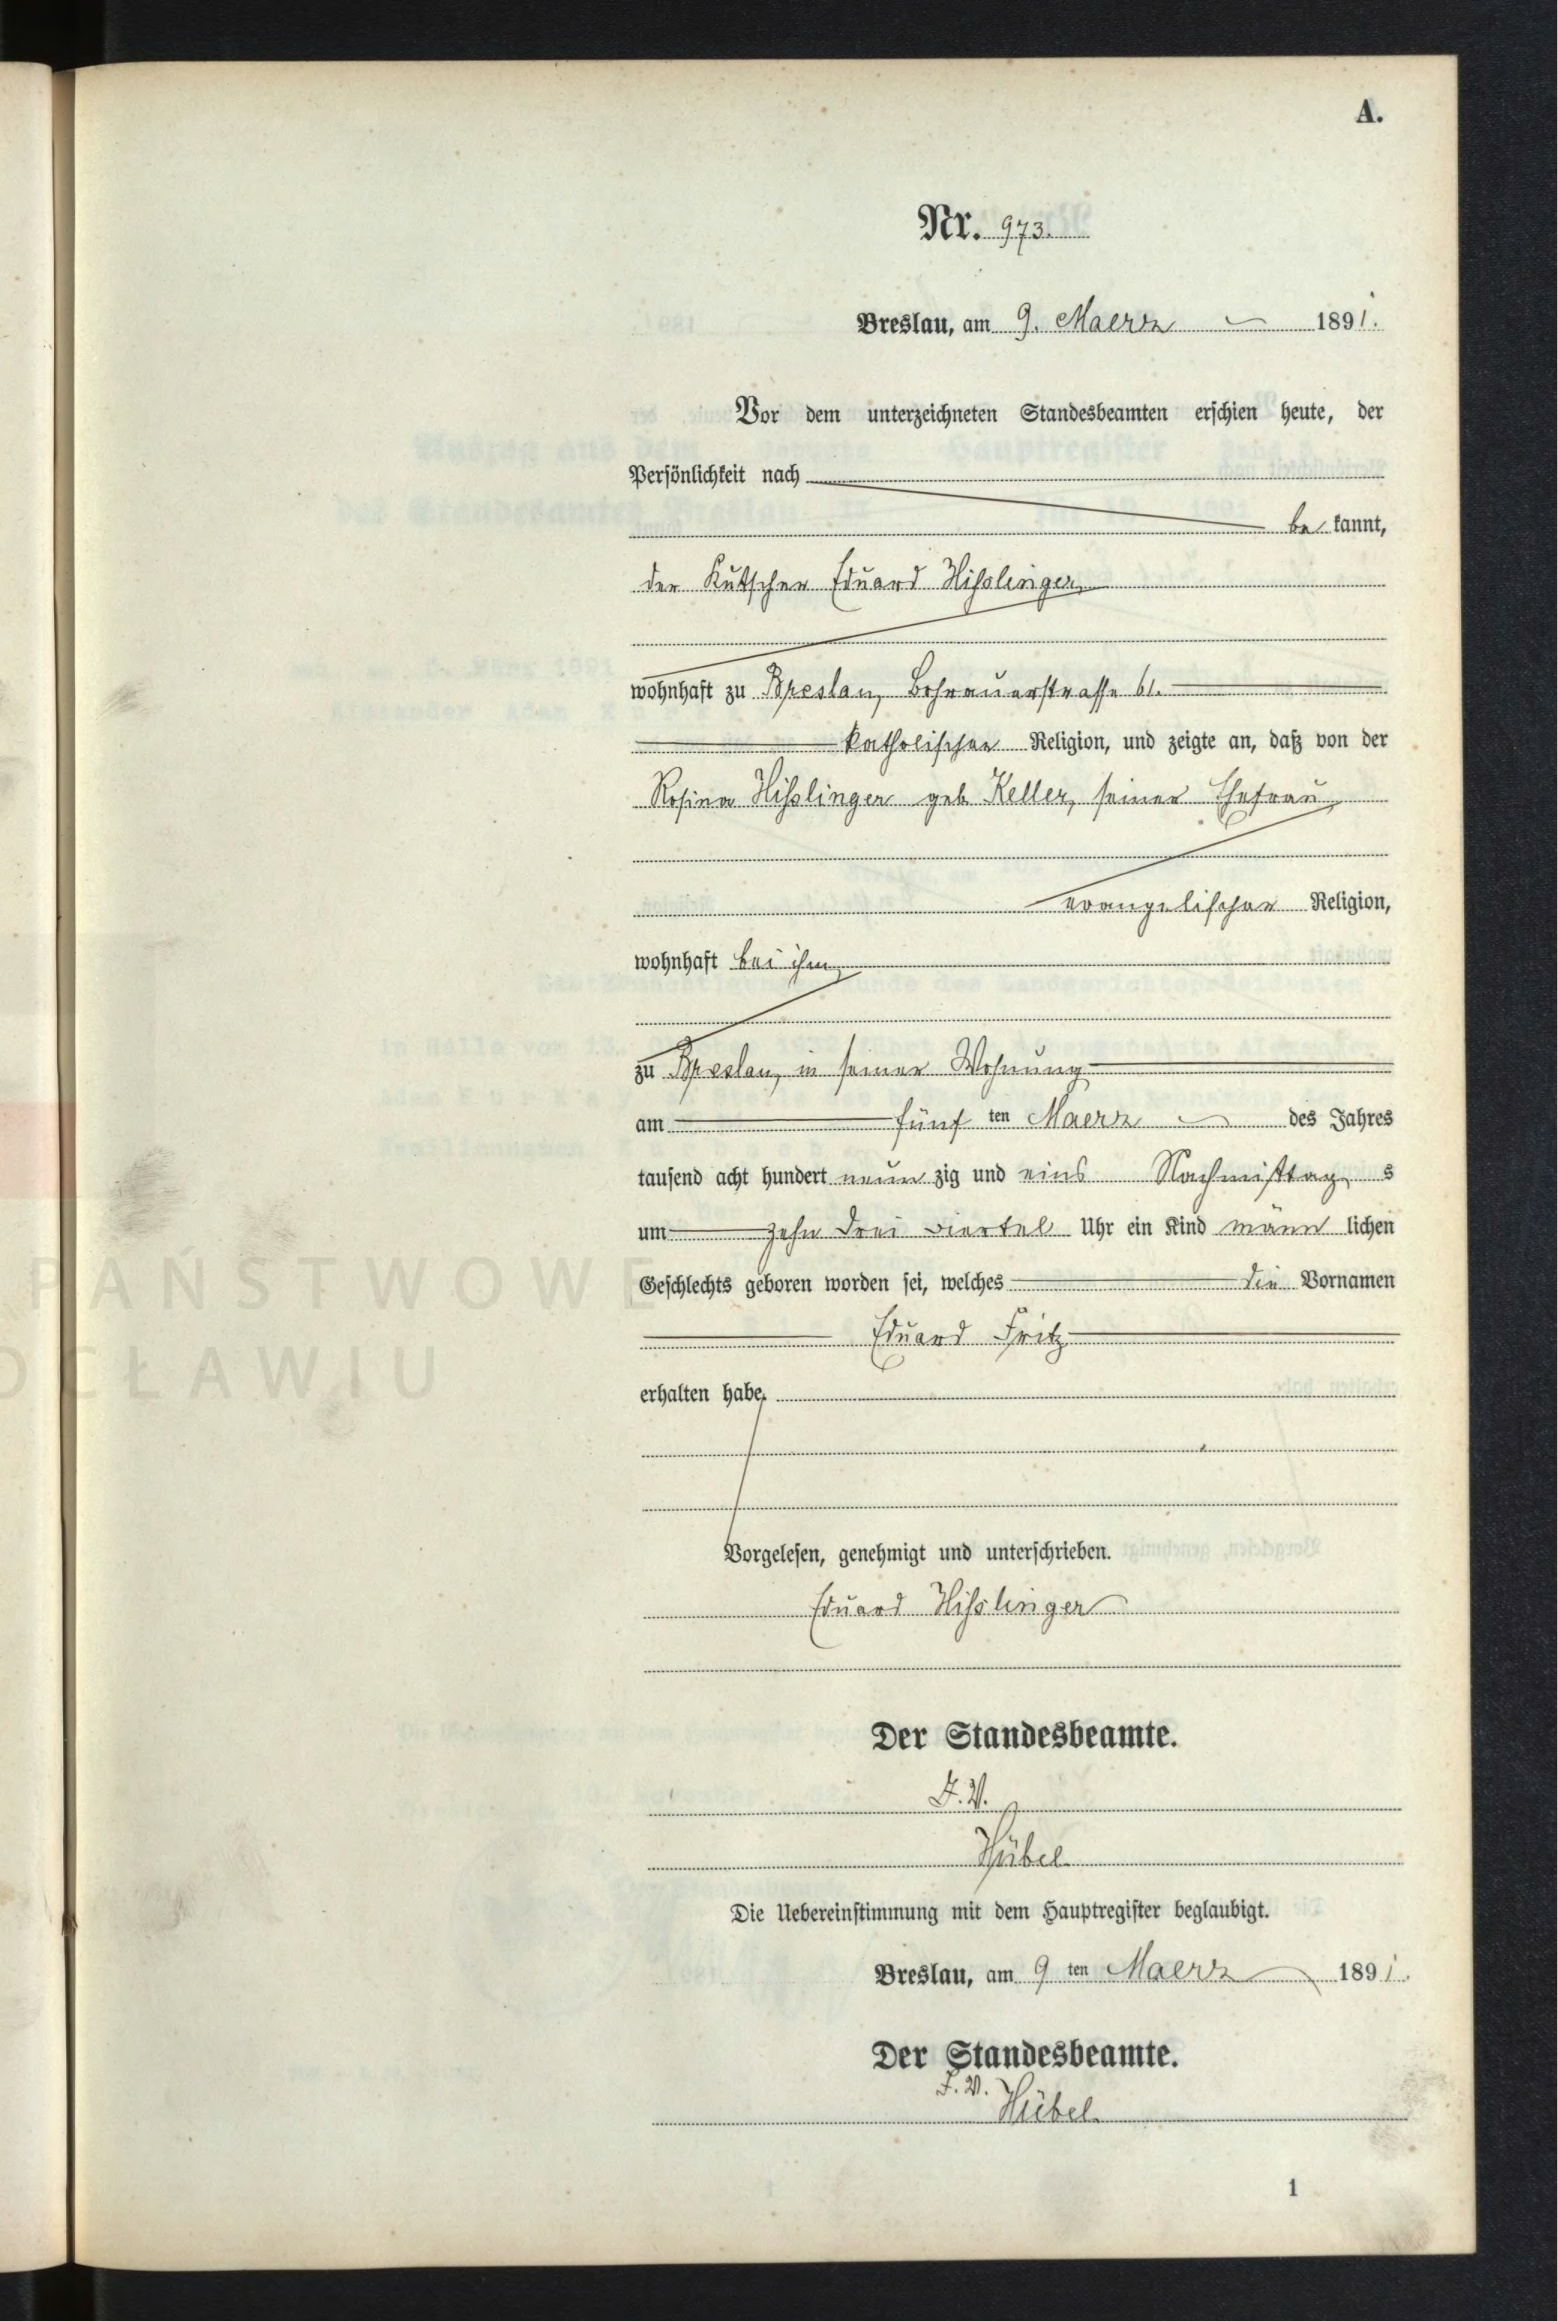 A.
Nr. 973.
Breslau, am 9. Maerz 1891.
Vor dem unterzeichneten Standesbeamten erschien heute, der
Persönlichkeit nach
bekannt,
der Kutscher Eduard Hisslinger,
wohnhaft zu Breslau, Bohrauerstrasse 61.
katholischer Religion, und zeigte an, daß von der
Rosina Hisslinger geb. Keller, seiner Ehefrau,
evangelischer Religion,
wohnhaft bei ihm,
zu Breslau, in seiner Wohnung
am fünf ten Maerz des Jahres
tausend acht hundert neun zig und eins Nachmittag s
um zehn drei viertel Uhr ein Kind männ lichen
Geschlechts geboren worden sei, welches die Vornamen
Eduard Fritz
erhalten habe.
Vorgelesen, genehmigt und unterschrieben.
Eduard Hisslinger
Der Standesbeamte.
I. V.
Hübel
Die Uebereinstimmung mit dem Hauptregister beglaubigt.
Breslau, am 9 ten Maerz 1891.
Der Standesbeamte.
I. V. Hübel
1
PAŃSTWOWE
OCŁAWIU